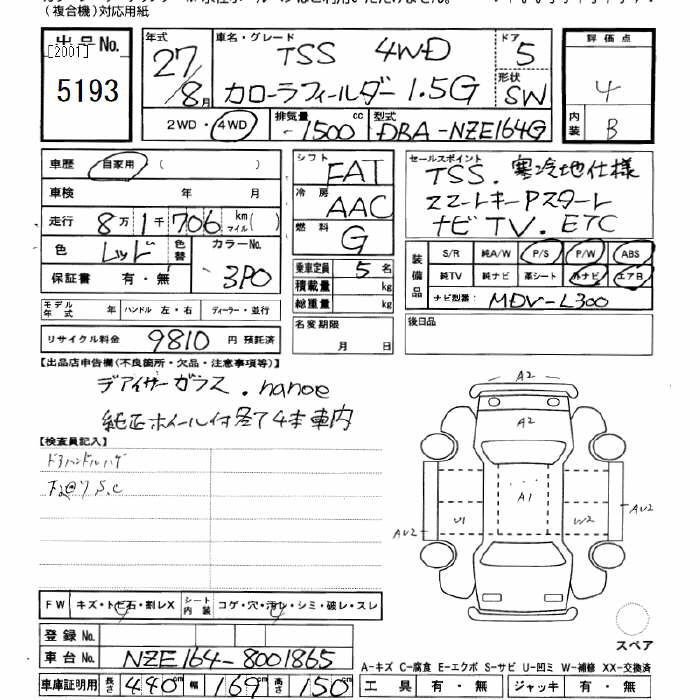 (複合機)対応用紙
出品No. [2001] 5193
年式 27/8月
車名・グレード TSS 4WD
カローラフィールダー 1.5G
ドア 5
形状 SW
評価点 4
内装 B
2WD・4WD
排気量 1500 cc
型式 DBA-NZE164G
車歴 自家用 ( )
車検 年 月
走行 8万1千706 km マイル( )
色 レッド 色替 カラーNo. 3P0
保証書 有・無
モデル年式 年 ハンドル 左・右 ディーラー・並行
リサイクル料金 9810 円 預託済
シフト FAT
冷房 AAC
燃料 G
乗車定員 5 名
積載量 kg
総重量 kg
名変期限 月 日
セールスポイント
TSS. 寒冷地仕様
スマートキー Pスタート
ナビ TV. ETC
装備品 S/R 純A/W P/S P/W ABS
純TV 純ナビ 革シート 外ナビ エアB
ナビ型番: MDV-L300
後日品
【出品店申告欄(不良箇所・欠品・注意事項等)】
デアイサーガラス. nanoe
純正ホイール付 冬タ4本車内
【検査員記入】
ドアハンドルハゲ
S.C
A2
A2
A1
U1
W2
AU2
AU2
FW キズ・トビ石・割レX シート内装 コゲ・穴・汚レ・シミ・破レ・スレ
登録No.
車台No. NZE164-8001865
車庫証明用 長さ 440 cm 幅 169 cm 高さ 150 cm
スペア
A-キズ C-腐食 E-エクボ S-サビ U-凹ミ W-補修 XX-交換済
工具 有・無 ジャッキ 有・無